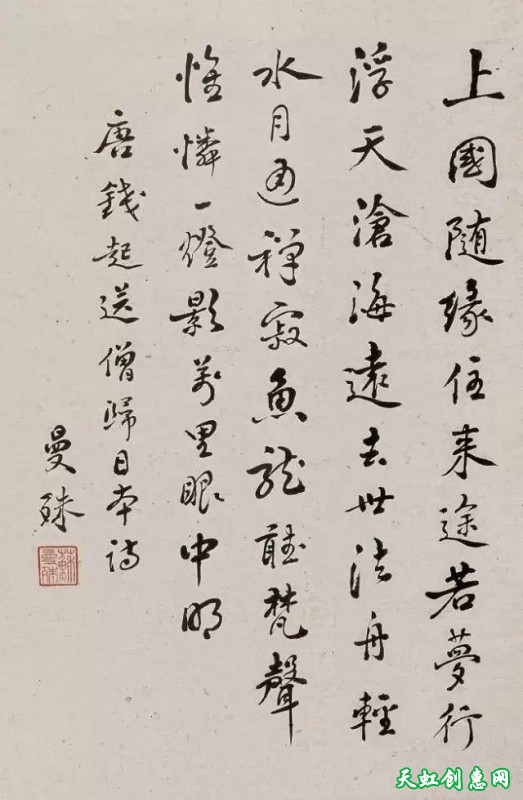 上國隨緣住来途若夢行
浮天滄海遠去世法舟輕
水月通禪寂魚龍聽梵聲
惟憐一燈影萬里眼中明
唐錢起送僧歸日本詩
曼殊
蘇曼殊
天虹创惠网